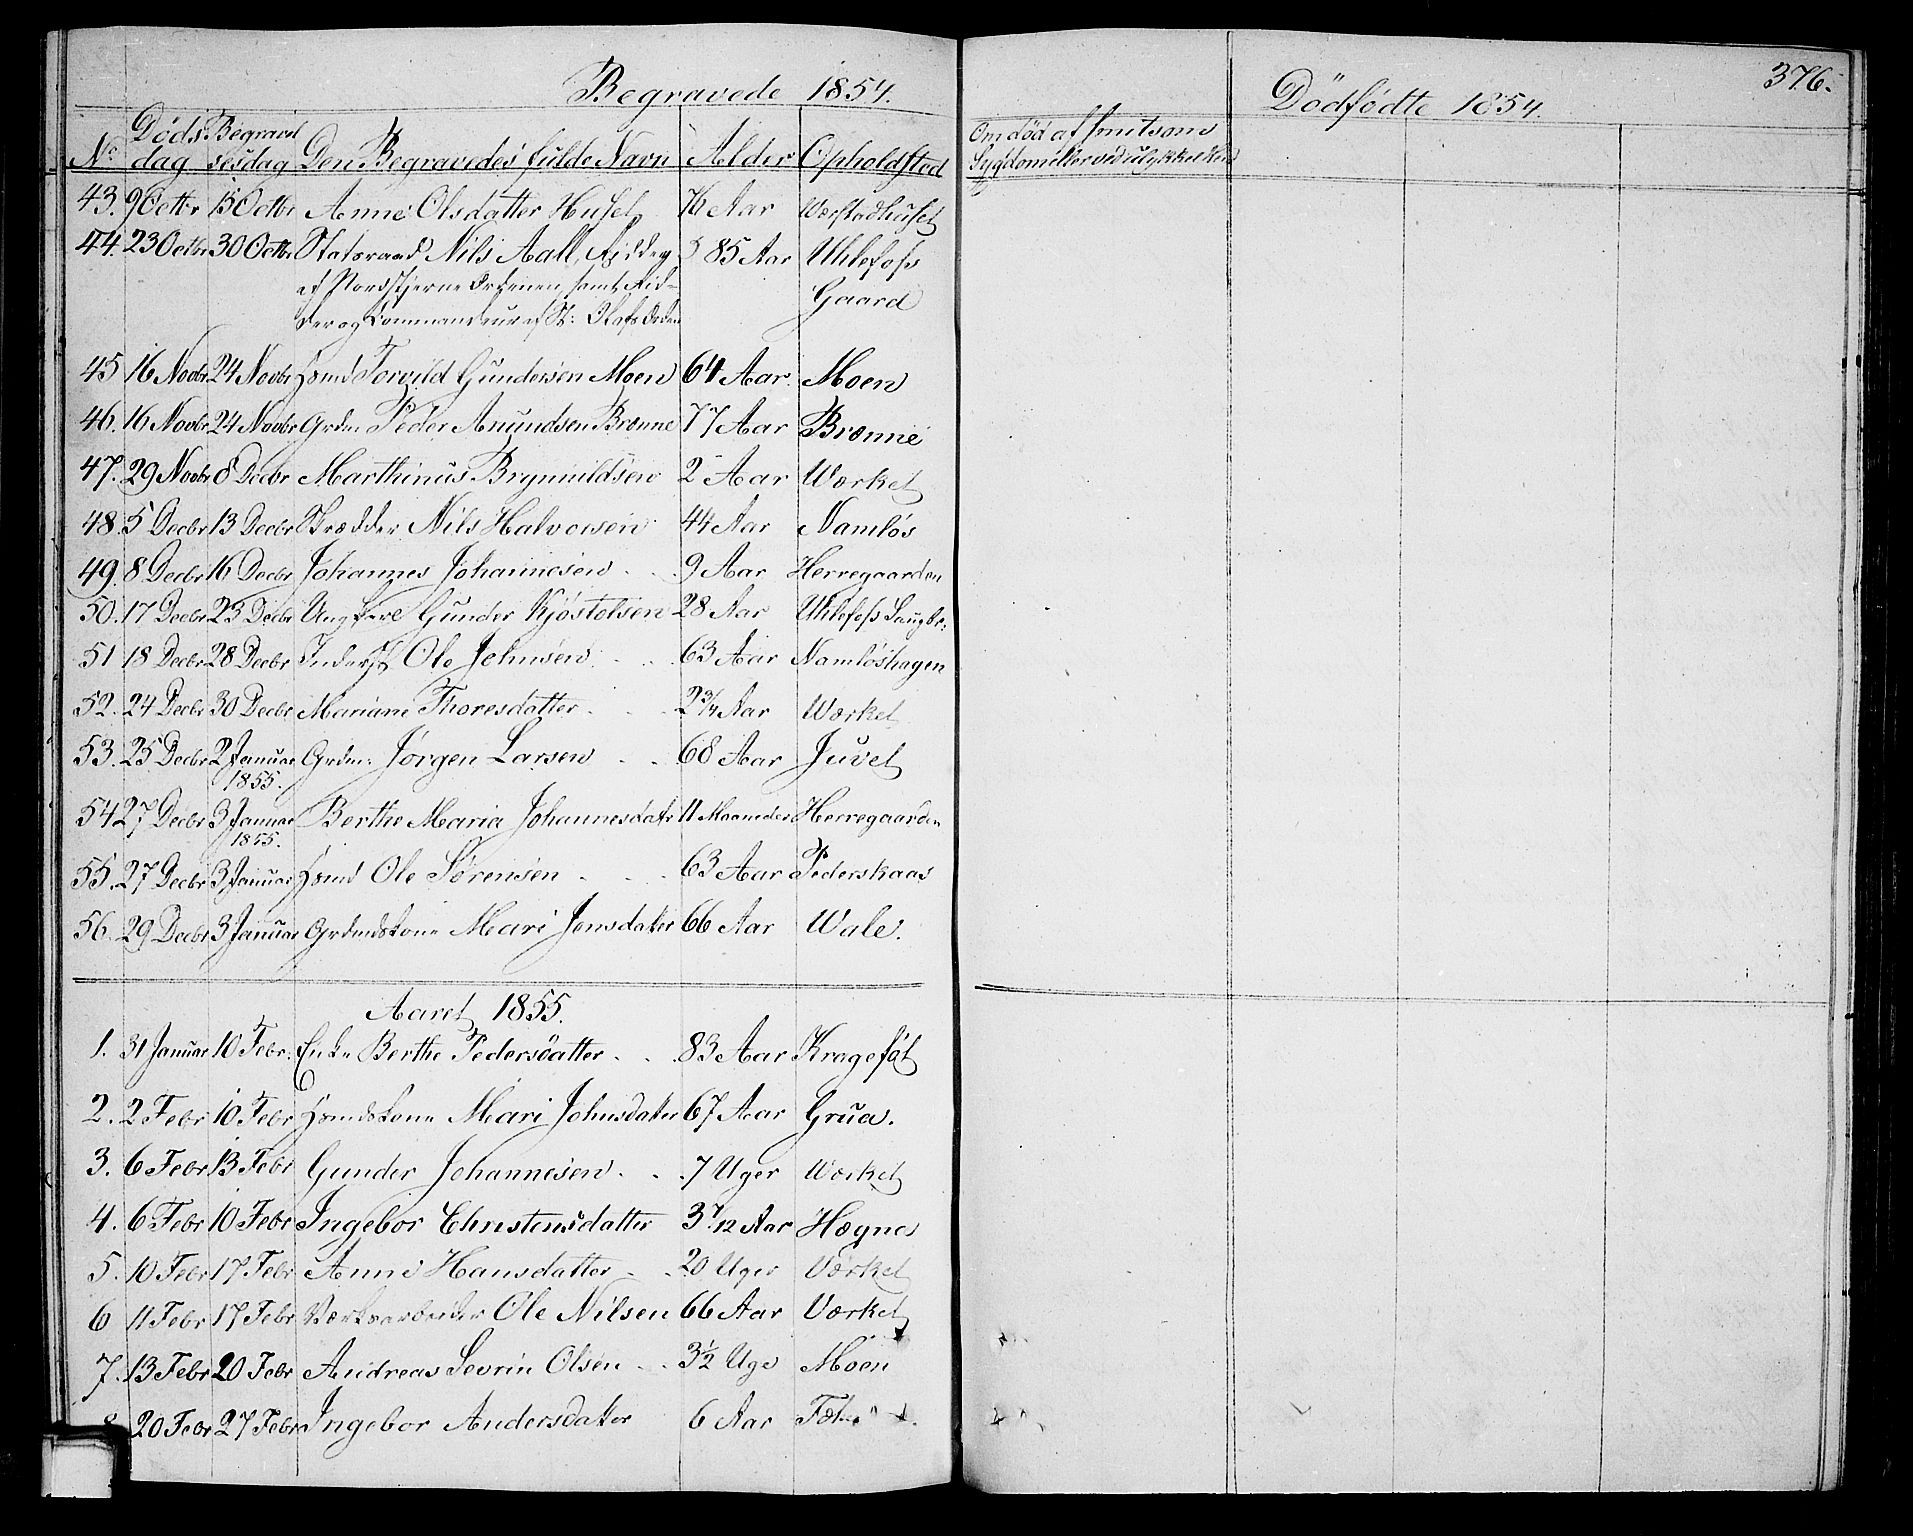 Begravede 1854.
No Døds dag Begravelsesdag Den Begravedes fulde Navn Alder Opholdsted
43. 9 Octbr 15 Octbr Anne Olsdatter Huset 76 Aar Værstadhuset
44. 23 Octbr 30 Octbr Statsraad Nils Aall, Ridder 85 Aar Uhlefoss
af Nordstjerne Ordenen, samt Rid- Gaard
der og Commandeur af St: Olafs Orden
45 16 Novbr 24 Novbr Hsmd Torvild Gundersen Moen 64 Aar. Moen
46. 16 Novbr 24 Novbr Grdm. Peder Amundsen Brenne 77 Aar Brenne
47. 29 Novbr 8 Decbr Marthinus Brynnildsen 2 Aar Værket
48. 5 Decbr 13 Decbr Skrædder Nils Halvorsen 44 Aar Namløs
49. 8 Decbr 16 Decbr Johannes Johannesen 9 Aar Herregaarden
50. 17 Decbr 23 Decbr Ungkarl Gunder Kjøstolsen 28 Aar Uhlefoss Saugbr:
51 18 Decbr 28 Decbr Inderst Ole Johnsen 63 Aar Namløshagen
52. 24 Decbr 30 Decbr Mariane Thoresdatter 2 3/4 Aar Værket
53. 25 Decbr 2 Januar Grdm: Jørgen Larsen 68 Aar Juvet
1855.
54 27 Decbr 3 Januar Berthe Maria Johannesdatr 11 Maaneder Herregaarden
1855.
55. 27 Decbr 3 Januar Hsmd Ole Sørensen 63 Aar Pederskaas
56. 29 Decbr 3 Januar Grdmdskone Mari Jensdatter 66 Aar Wale.
Aaret 1855.
1. 31 Januar 10 Febr. Enke Berthe Pedersdatter 83 Aar Kragefot
2. 2 Febr 10 Febr Hsmdskone Mari Johnsdatter 67 Aar Grua.
3. 6 Febr 13 Febr Gunder Johannesen 7 Uger Værket
4. 6 Febr 10 Febr Ingebor Christensdatter 3 7/12 Aar Hægnes
5. 10 Febr 17 Febr Anne Hansdatter 20 Uger Værket
6 11 Febr 17 Febr Værksarbeider Ole Nilsen 66 Aar Værket
7. 13 Febr 20 Febr Andreas Sevrin Olsen 3 1/2 Uge Moen
8 20 Febr 27 Febr Ingebor Andersdatter 6 Aar
376.
Dödfödte 1854.
Om död af smitsom
Sygdom eller ved ulykkelse